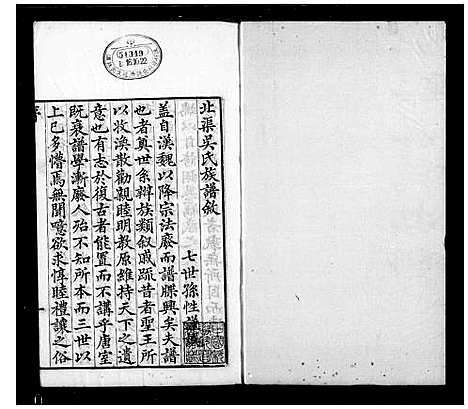 北渠吳氏族譜敘
七世孫性
蓋自漢魏以降宗法廢而譜牒興矣夫譜
也者奠世系辯族類敘戚疏昔者聖王所
以收渙散勸親睦明教原維持天下之遺
意也有志於復古者能置而不講乎唐室
既衰譜學漸廢人殆不知所本而三世以
上已多懵焉無聞噫欲求惇睦禮讓之俗
序
51319